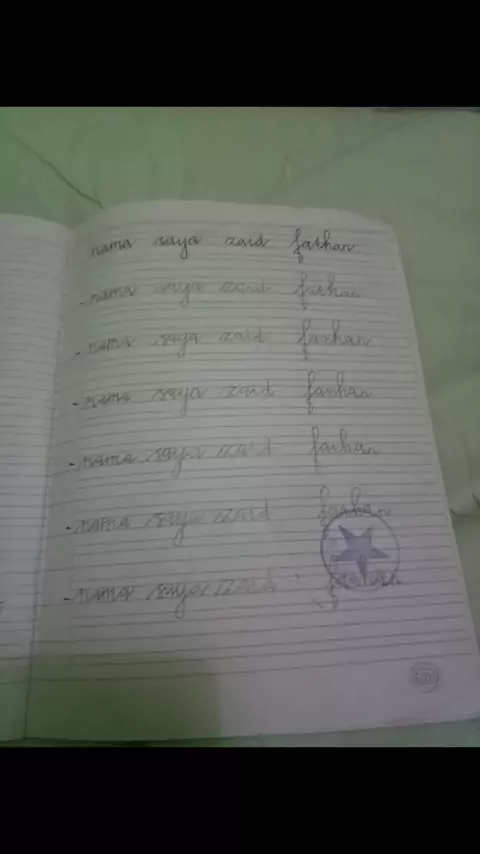 nama saya zaid farhan
- nama saya zaid farhan
- nama saya zaid farhan
- nama saya zaid farhan
- nama saya zaid farhan
- nama saya zaid farhan
- nama saya zaid farhan